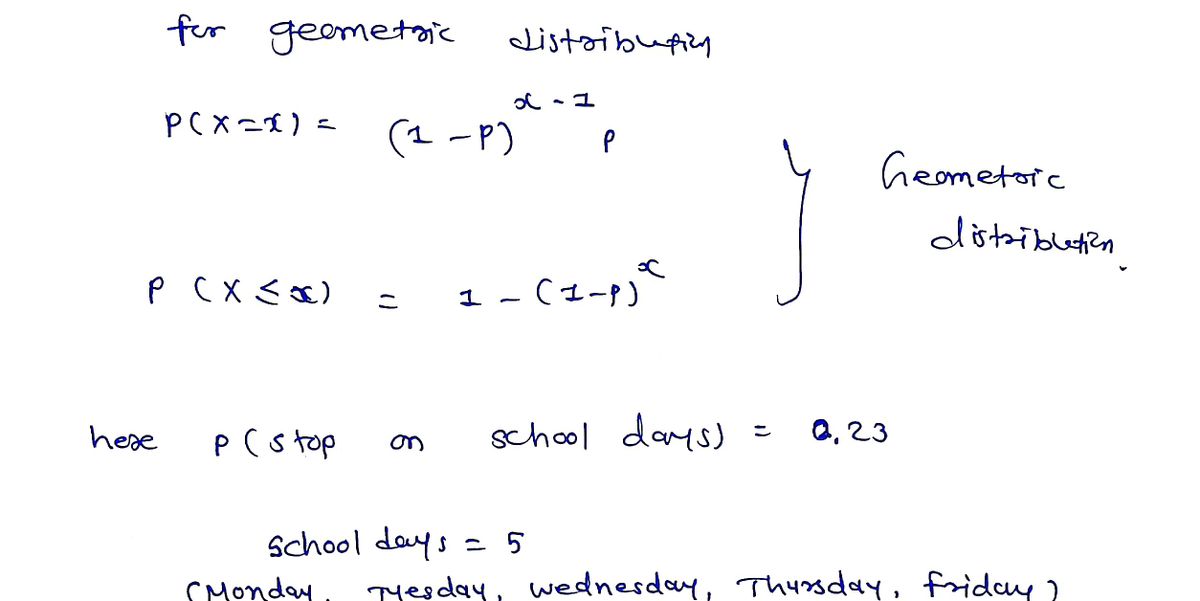 for geometric distribution
P(X=x) = (1-P)^{x-1} P
Geometric
distribution.
P (X ≤ x) = 1 - (1-P)^x
here P(stop on school days) = 0.23
School days = 5
(Monday, Tuesday, wednesday, Thursday, friday)